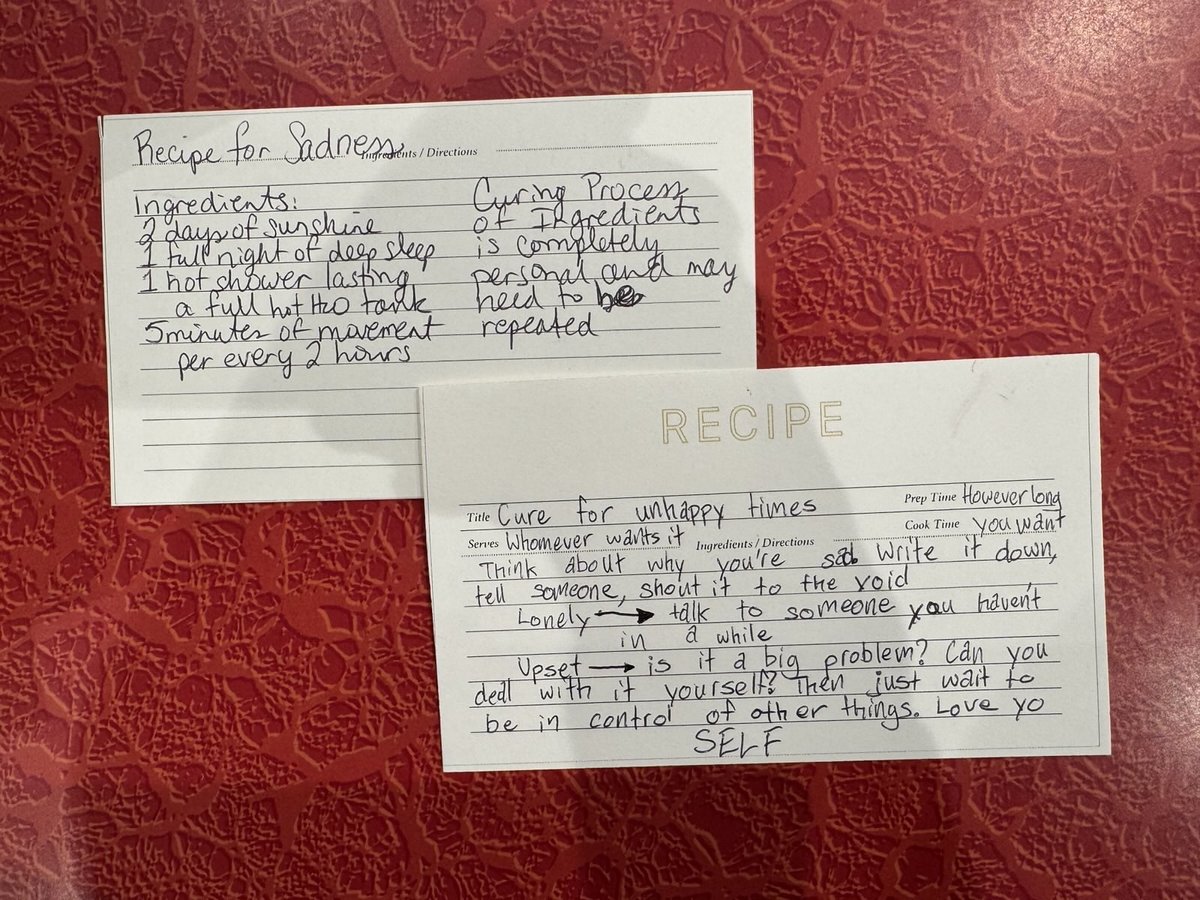 Recipe for Sadness
Ingredients / Directions
Ingredients:
2 days of sunshine
1 full night of deep sleep
1 hot shower lasting
a full hot H2O tank
5 minutes of movement
per every 2 hours
Curing Process
of Ingredients
is completely
personal and may
need to be
repeated
RECIPE
Title Cure for unhappy times
Prep Time However long
Serves Whomever wants it
Cook Time you want
Ingredients / Directions
Think about why you're sad. Write it down,
tell someone, shout it to the void
Lonely → talk to someone you haven't
in a while
Upset → is it a big problem? Can you
deal with it yourself? Then just wait to
be in control of other things. Love yo
SELF